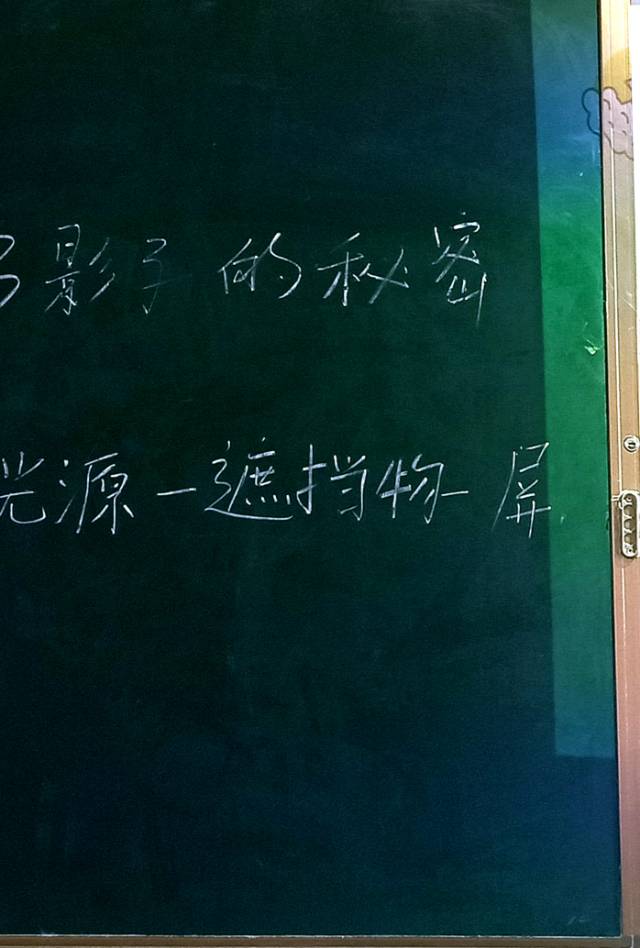 3影子的秘密
光源-遮挡物-屏